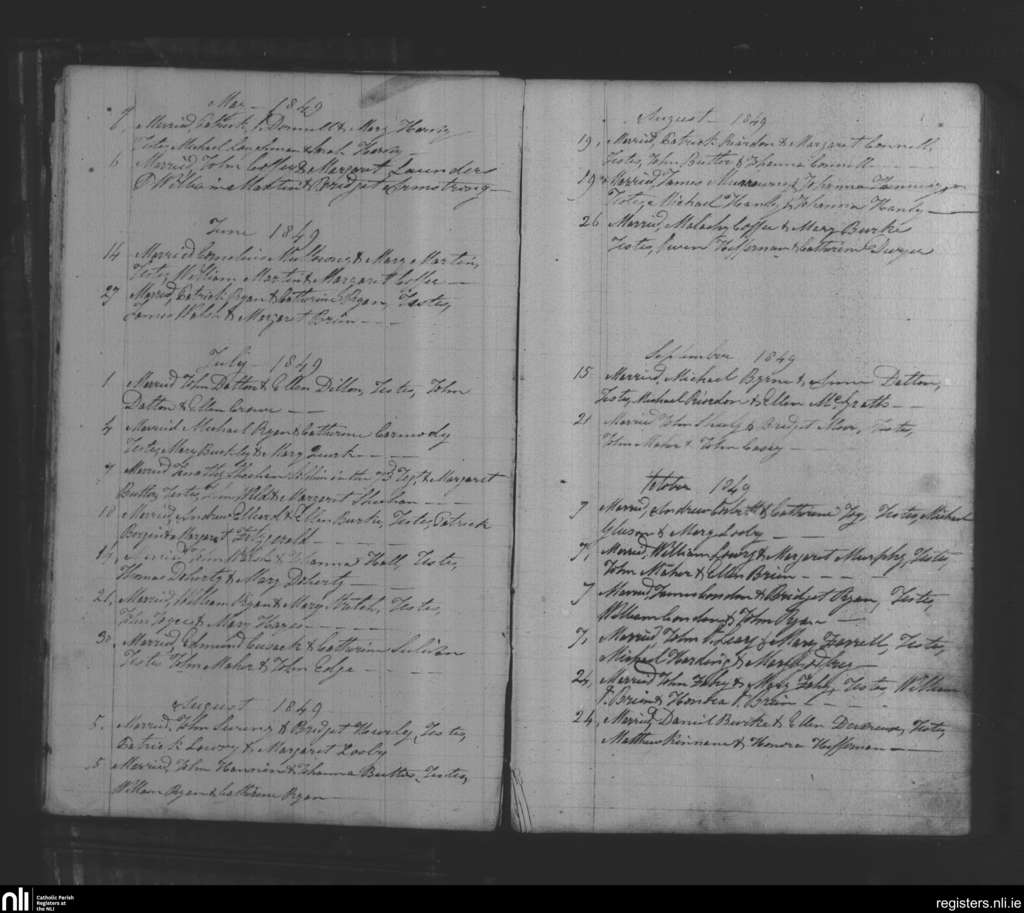 May - 1849
6 Married, Patrick O'Donnell & Mary
Testes, Michael & Sarah
6 Married, John Coffee & Margaret Launders
William Martin & Bridget Armstrong
June 1849
14 Married Cornelius & Mary Martin,
Testes, William Martin & Margaret Coffee
27 Married, Patrick Ryan & Catherine Ryan, Testes,
James Walsh & Margaret Brien
July - 1849
1 Married John Dalton & Ellen Dillon, Testes, John
Dalton & Ellen Crowe
4 Married Michael Ryan & Catherine Carmody
Testes, Mary Buckley & Mary Quirk
7 Married Timothy Sheehan in the 73d Regt. & Margaret
Butler, Testes, & Margaret Sheehan
18 Married, Andrew & Ellen Burke, Testes, Patrick
& Margaret Fitzgerald
Married John Walsh & Johanna Hall, Testes,
Thomas Doherty & Mary Doherty
21, Married, William Ryan & Mary Testes,
John & Mary Hayes
30 Married, Edmund Cusack & Catherine Sulivan
Testes John Maher & John Edge
August 1849
5. Married, John & Bridget Testes,
Patrick Lowry & Margaret Looby
5 Married, John Hannin & Johanna Butler, Testes,
William Ryan & Catherine Ryan
August 1849
19, Married, Patrick Riordon & Margaret Connell
Testes, John Butler & Johanna Connell
19 Married, James & Johanna
Testes, Michael Hanly & Johanna Hanly
26 Married, Malachy Coffee & Mary Burke
Testes, Heffernan & Catherine Dwyer
September 1849
15 Married, Michael Byrne & Anne Dalton,
Testes, Michael Riordon & Ellen McGrath
21 Married John & Bridget Testes,
John Maher & John Casey
October 1849
7 Married, Andrew & Catherine Testes, Michael
Gleeson & Mary Looby
7, Married, William Lowry & Margaret Murphy, Testes,
John Maher & Ellen Brien
7 Married James Condon & Bridget Ryan, Testes,
William Condon & John Ryan
7, Married, John O'Leary & Mary Farrell, Testes,
Michael Harding & Mary
24, Married John Fahy & Mary Fahy, Testes, William
O'Brien & Honora O'Brien
24, Married Daniel Burke & Ellen Devereux, Testes,
Matthew Kinnane & Honora Heffernan
nli
Catholic Parish
Registers at
the NLI
registers.nli.ie